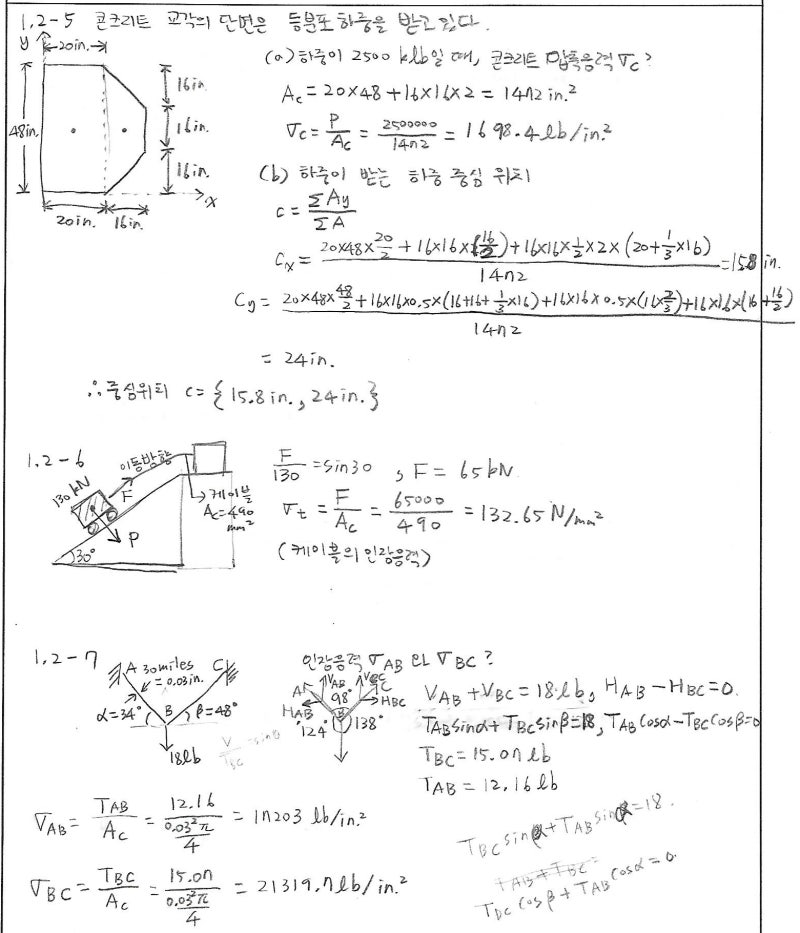 1.2-5 콘크리트 교각의 단면은 등분포하중을 받고있다.
y
20in.
48in.
16in.
16in.
16in.
x
20in. 16in.
(a) 하중이 2500 klb일 때, 콘크리트 압축응력 σc?
Ac = 20×48 + 16×16×2 = 1472 in.²
σc = P/Ac = 2500000/1472 = 1698.4 lb/in.²
(b) 하중이 받는 하중 중심 위치
c = ΣAy/ΣA
Cx = (20×48×20/2 + 16×16×(16/2) + 16×16×1/2×2×(20+1/3×16))/1472 = 15.8 in.
Cy = (20×48×48/2 + 16×16×0.5×(16+16+1/3×16) + 16×16×0.5×(16×2/3) + 16×16×(16+16/2))/1472
= 24in.
∴ 중심위치 c = {15.8in., 24in.}
1.2-6
이동방향
130kN
F
P
30°
케이블
Ac=490
mm²
F/130 = sin30 , F = 65kN
σt = F/Ac = 65000/490 = 132.65 N/mm²
(케이블의 인장응력)
1.2-7
A 30miles C
= 0.03in.
α=34° B β=48°
18lb
V/TBC = sinβ
인장응력 σAB 와 σBC ?
A VAB VBC C
98°
HAB B HBC
124° 138°
VAB + VBC = 18 lb, HAB - HBC = 0.
TAB sinα + TBC sinβ = 18, TAB cosα - TBC cosβ = 0
TBC = 15.07 lb
TAB = 12.16 lb
σAB = TAB/Ac = 12.16/(0.03²π/4) = 17203 lb/in.²
σBC = TBC/Ac = 15.07/(0.03²π/4) = 21319.7 lb/in.²
TBC sinβ + TAB sinα = 18.
TAB + TBC =
TBC cosβ + TAB cosα = 0.